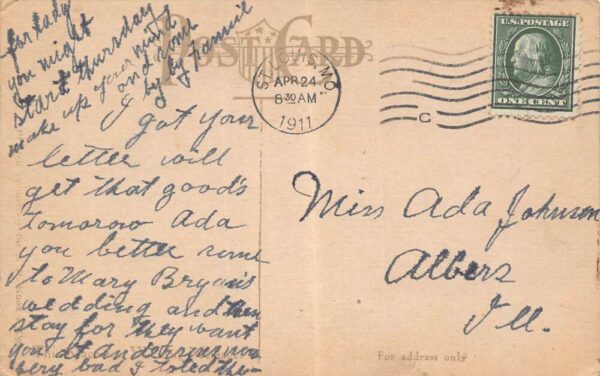 for lady
you might
start thursday
make up your mind
and some
by by Fannie
POST CARD
ST. LOUIS, MO.
APR 24
8 30 AM
1911
C
U.S. POSTAGE
ONE CENT
I got your
letter will
get that goods
tomorow Ada
you better some
to Mary Bryan's
wedding and then
stay for they want
you at Anderson now
very bad I toled the
Miss Ada Johnson
Albers
Ill.
For address only